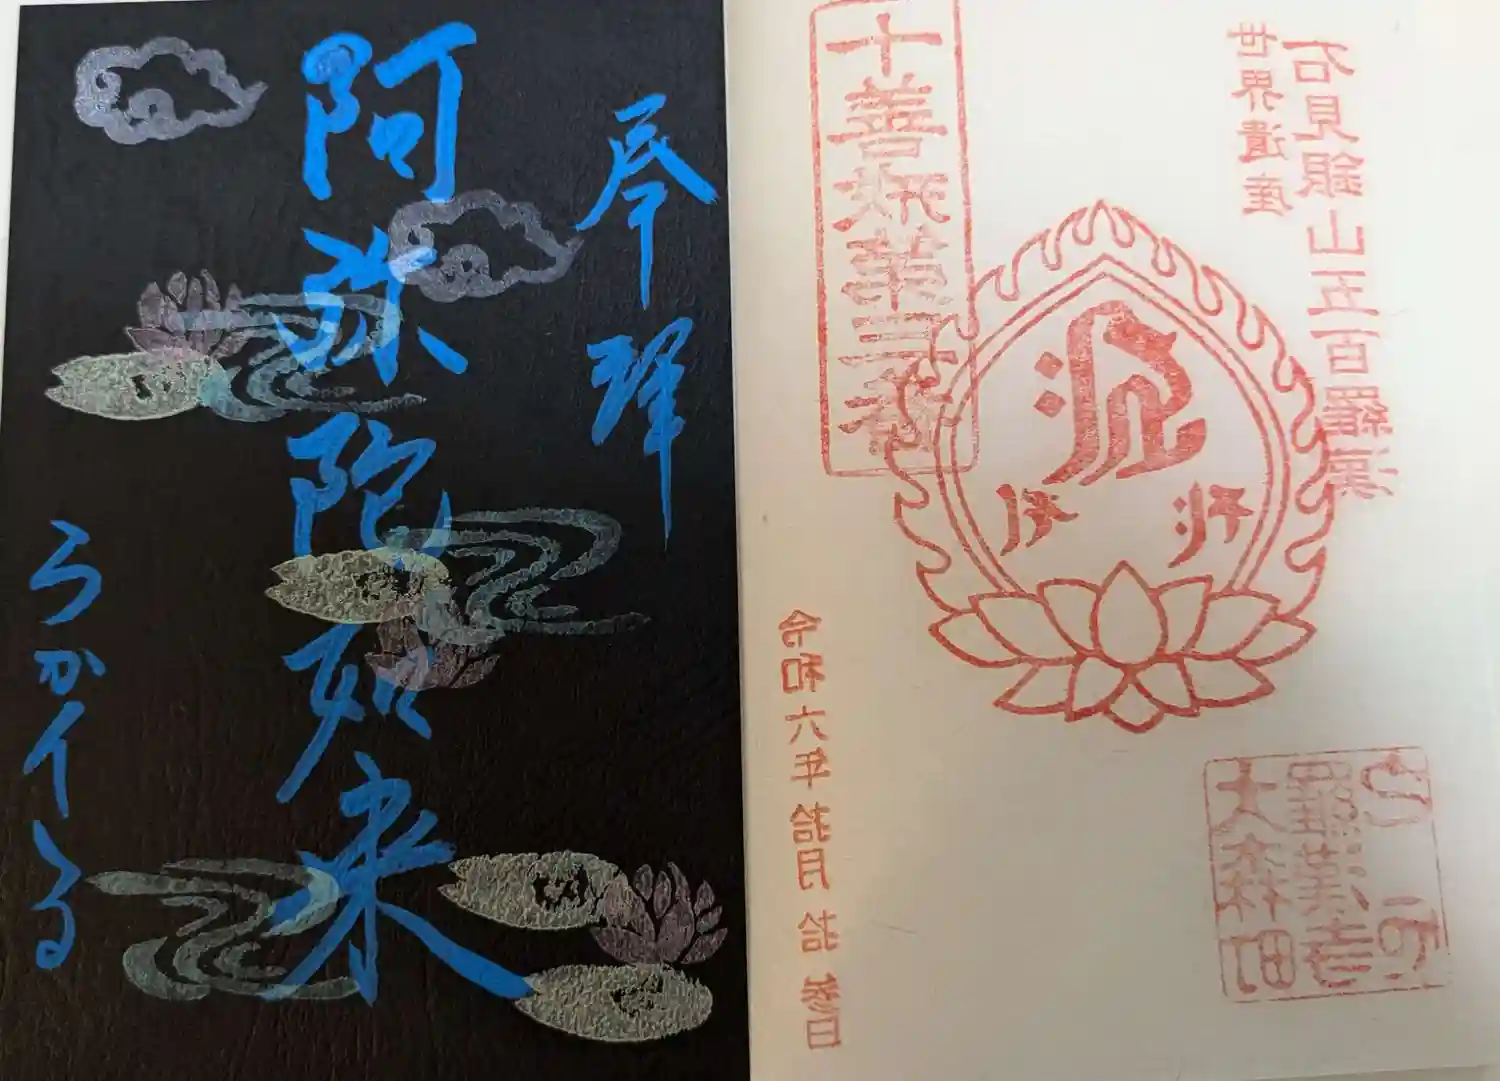 世界遺産
石見銀山五百羅漢
十善
令和六年拾月拾参日
大森町
羅漢寺
奉拝
阿弥陀如来